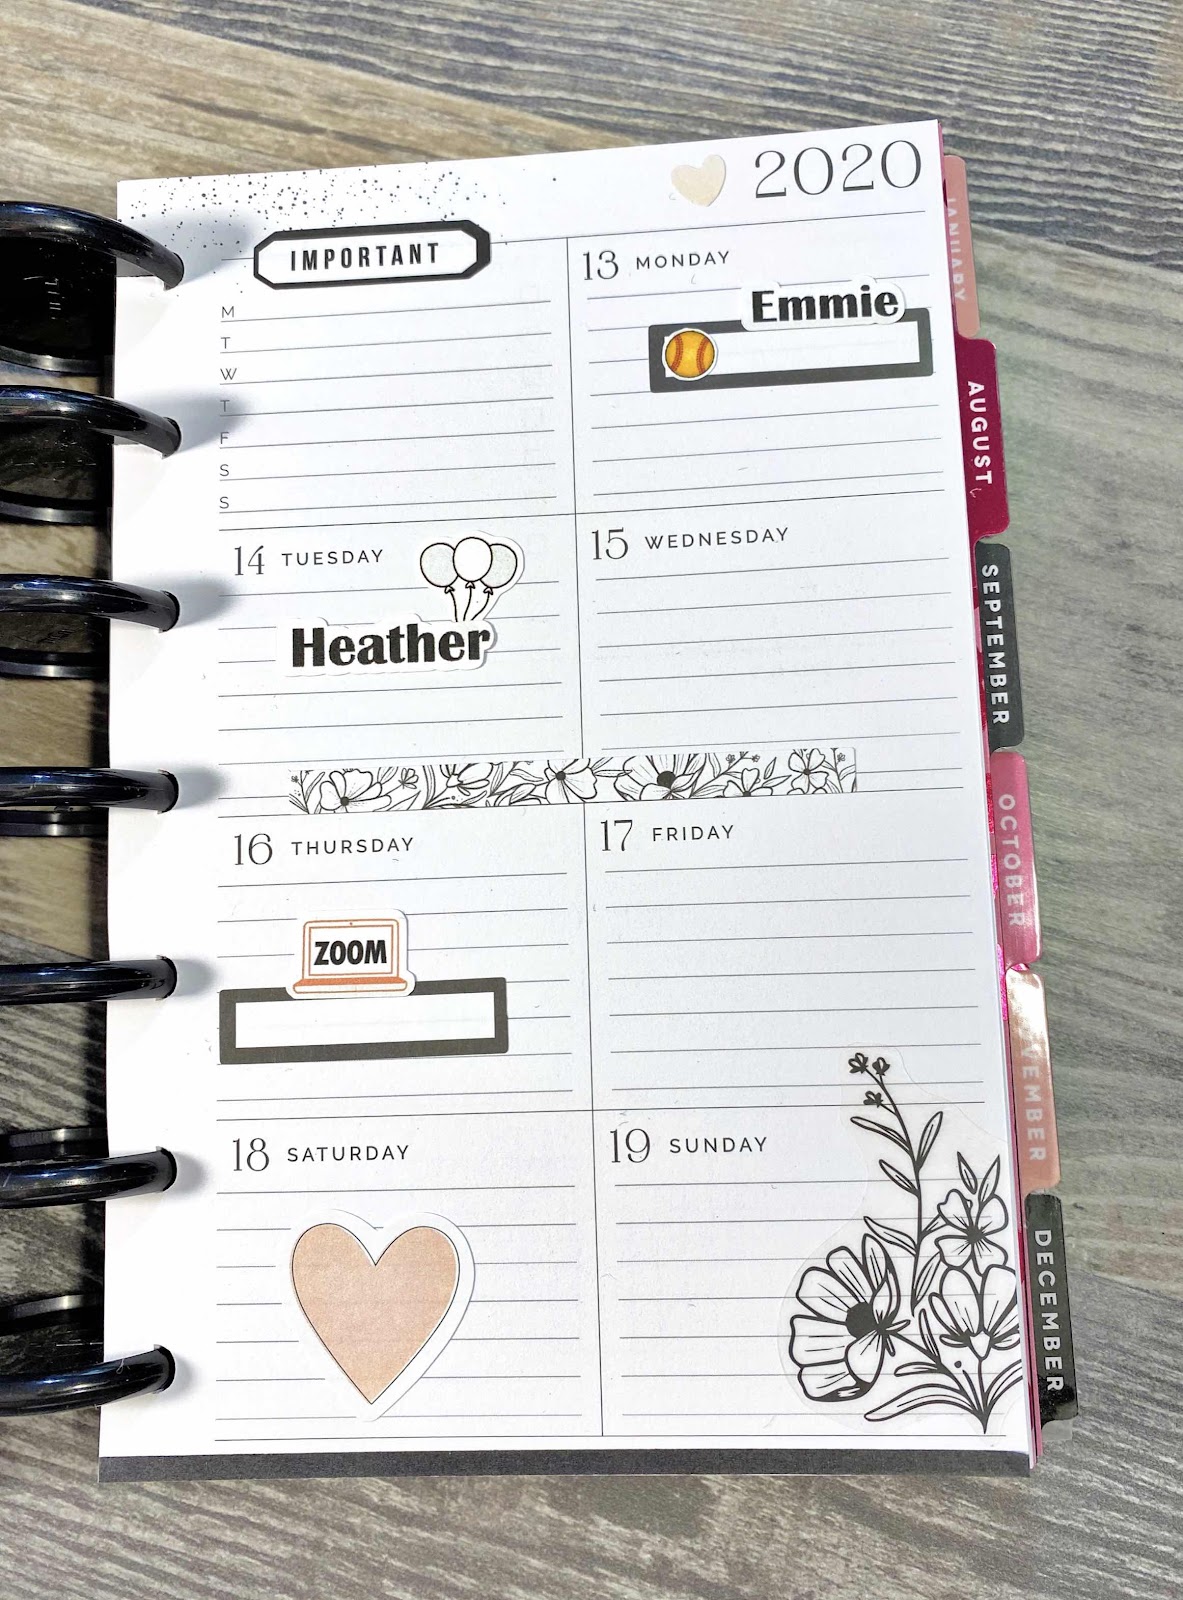 2020
IMPORTANT
M
T
W
T
F
S
S
13 MONDAY
Emmie
14 TUESDAY
Heather
15 WEDNESDAY
16 THURSDAY
ZOOM
17 FRIDAY
18 SATURDAY
19 SUNDAY
JANUARY
AUGUST
SEPTEMBER
OCTOBER
VEMBER
DECEMBER